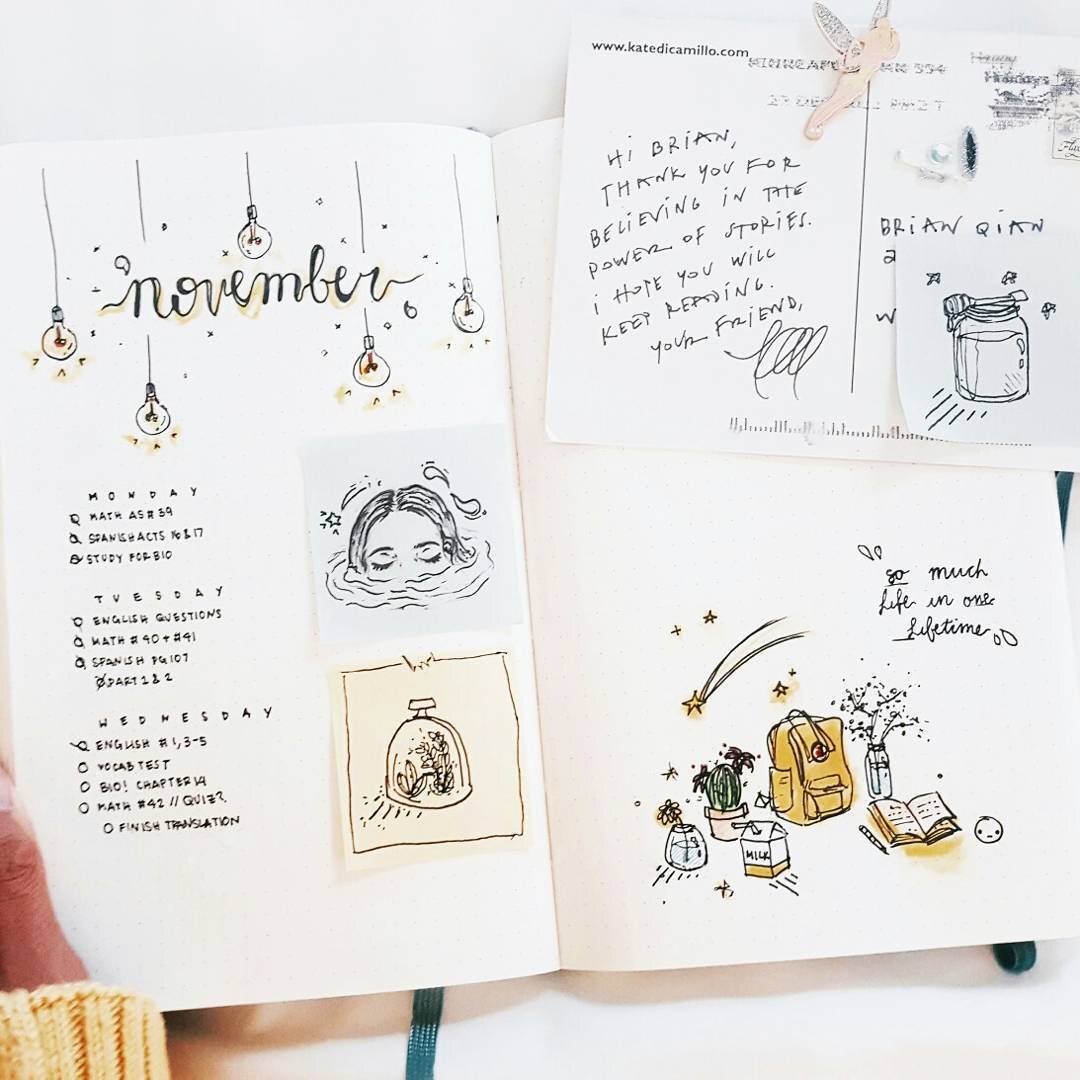 november
MONDAY
MATH AS#39
SPANISH ACTS 16&17
STUDY FOR BIO
TUESDAY
ENGLISH QUESTIONS
MATH #40+#41
SPANISH PG107
PART 1 & 2
WEDNESDAY
ENGLISH #1,3-5
VOCAB TEST
BIO! CHAPTER 14
MATH #42 // QUIZ?
FINISH TRANSLATION
www.katedicamillo.com
HI BRIAN,
THANK YOU FOR
BELIEVING IN THE
POWER OF STORIES.
I HOPE YOU WILL
KEEP READING.
YOUR FRIEND,
BRIAN QIAN
2
W
so much
life in one
lifetime
MILK